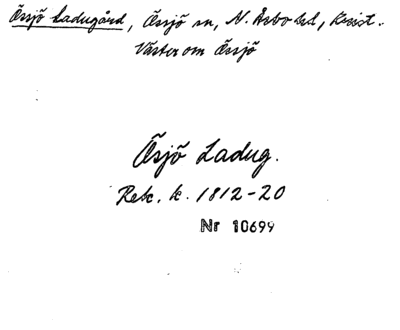 Össjö Ladugård, Össjö sn, N. Åsbo hd, Krist.
Väster om Össjö
Ösjö Ladug.
Rek. k. 1812-20
Nr 10699